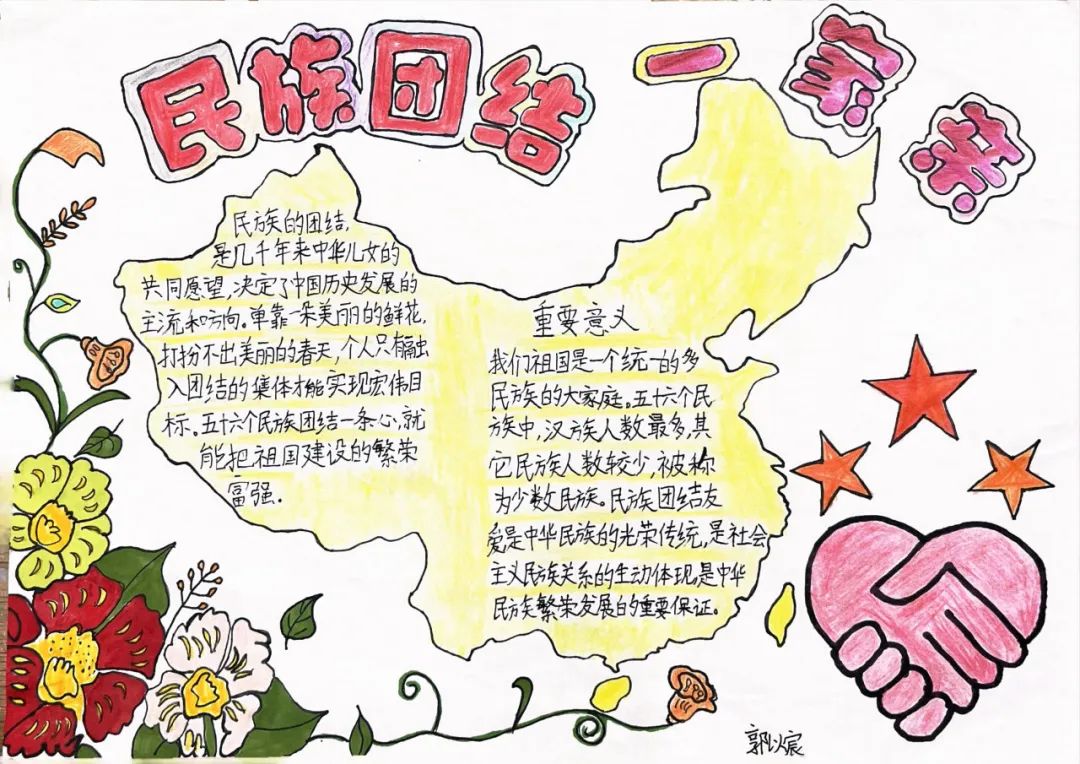 民族团结一家亲
民族的团结,
是几千年来中华儿女的
共同愿望,决定了中国历史发展的
主流和方向。单靠一朵美丽的鲜花,
打扮不出美丽的春天,个人只有融
入团结的集体才能实现宏伟目
标。五十六个民族团结一条心,就
能把祖国建设的繁荣
富强。
重要意义
我们祖国是一个统一的多
民族的大家庭。五十六个民
族中,汉族人数最多,其
它民族人数较少,被称
为少数民族。民族团结友
爱是中华民族的光荣传统,是社会
主义民族关系的生动体现,是中华
民族繁荣发展的重要保证。
郭以宸